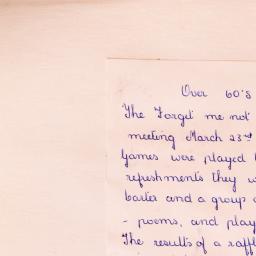 Over 60's
The Forget me not
meeting March 23rd
Games were played
refreshments they
barter and a group
- poems, and play
The results of a raff